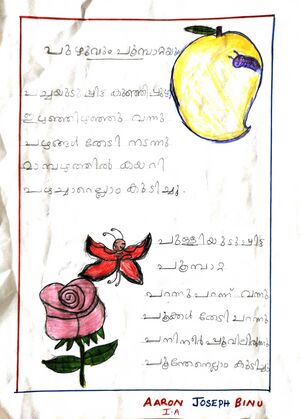 പുഴുവും പൂമ്പാറ്റയും
പച്ചയുടുപ്പിട്ട കുഞ്ഞിപ്പുഴു
ഇഴഞ്ഞിഴഞ്ഞു വന്നു
പഴങ്ങൾ തേടി നടന്നു
മാമ്പഴത്തിൽ കയറി
പഴച്ചാറെല്ലാം കുടിച്ചു.
പുള്ളിയുടുപ്പിട്ട
പൂമ്പാറ്റ
പറന്നു പറന്ന് വന്നു
പൂക്കൾ തേടി പറന്നു
പനിനീർ പൂവിലിരുന്നു
പൂന്തേനെല്ലാം കുടിച്ചു
AARON JOSEPH BINU
I.A